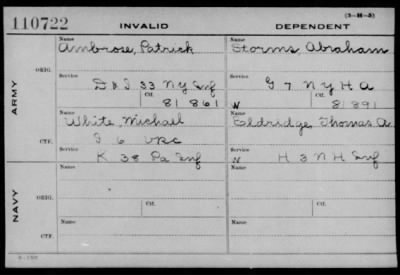 110722 INVALID DEPENDENT (3-H-5)
Name Name
Ambrose, Patrick Storms Abraham
ORIG. Service Service
D & I 33 N Y Inf G 7 N Y H A
Ctf. Ctf.
81 861 W 81 891
ARMY
Name Name
White, Michael Eldridge Thomas A
CTF. I 6 VRC
Service Service
K 38 Pa Inf N H 3 N H Inf
Name Name
ORIG.
Ctf. Ctf.
NAVY
Name Name
CTF.